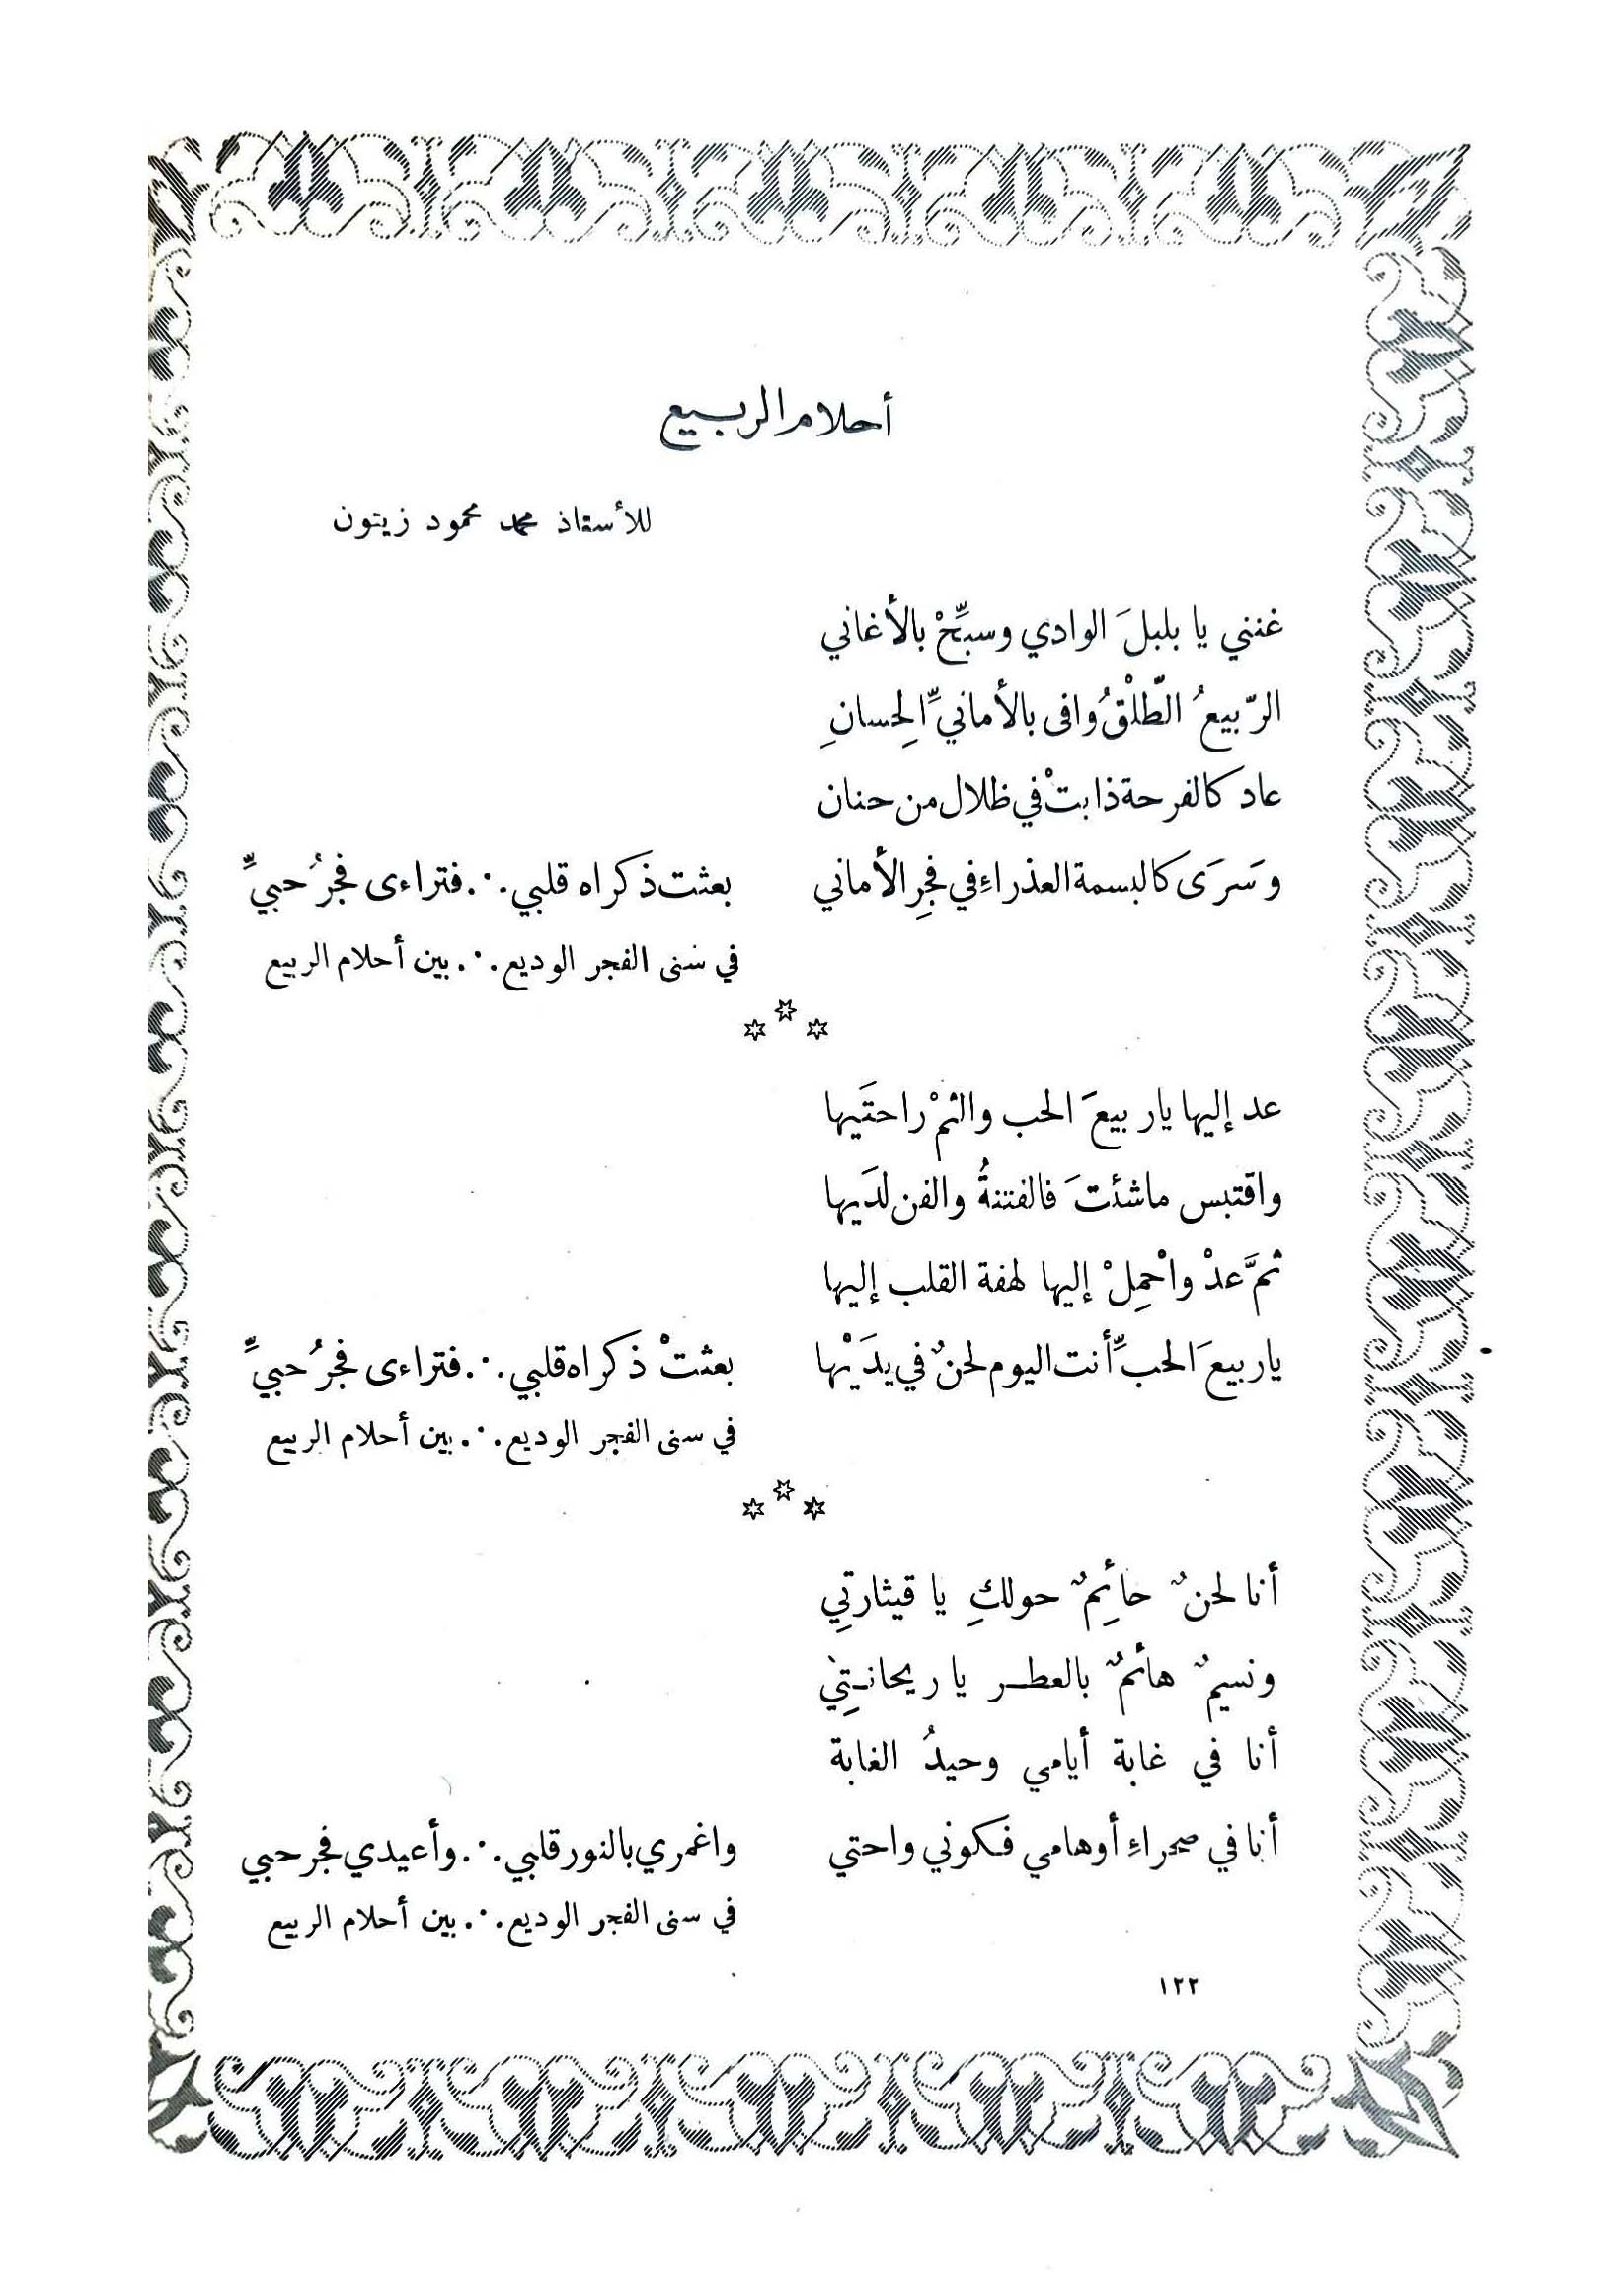 أحلام الربيع
للأستاذ محمد محمود زيتون
غنني يا بلبلَ الوادي وسبِّحْ بالأغاني
الرّبيعُ الطّلْقُ وافى بالأمانيِّ الحِسانِ
عاد كالفرحة ذابتْ في ظلال من حنان
وسَرَى كالبسمة العذراءِ في فجرِ الأماني بعثت ذكراه قلبي .·. فتراءى فجرُ حبيِّ
في سنى الفجر الوديع .·. بين أحلام الربيع
***
عد إليها يا ربيعَ الحب والثمْ راحتَيها
واقتبس ما شئتَ فالفتنةُ والفن لدَيها
ثمَّ عدْ واحْمِلْ إليها لهفة القلب إليها
يا ربيعَ الحبِّ أنت اليوم لحنٌ في يدَيْها بعثتْ ذكراه قلبي .·. فتراءى فجرُ حبيِّ
في سنى الفجر الوديع .·. بين أحلام الربيع
***
أنا لحنٌ حائِمٌ حولكِ يا قيثارتِي
ونسيمٌ هائمٌ بالعطر يا ريحانتِي
أنا في غابة أيامي وحيدُ الغابة
أنا في صحراءِ أوهامي فكوني واحتي واغمري بالنور قلبي .·. وأعيدي فجر حبي
في سنى الفجر الوديع .·. بين أحلام الربيع
١٢٢